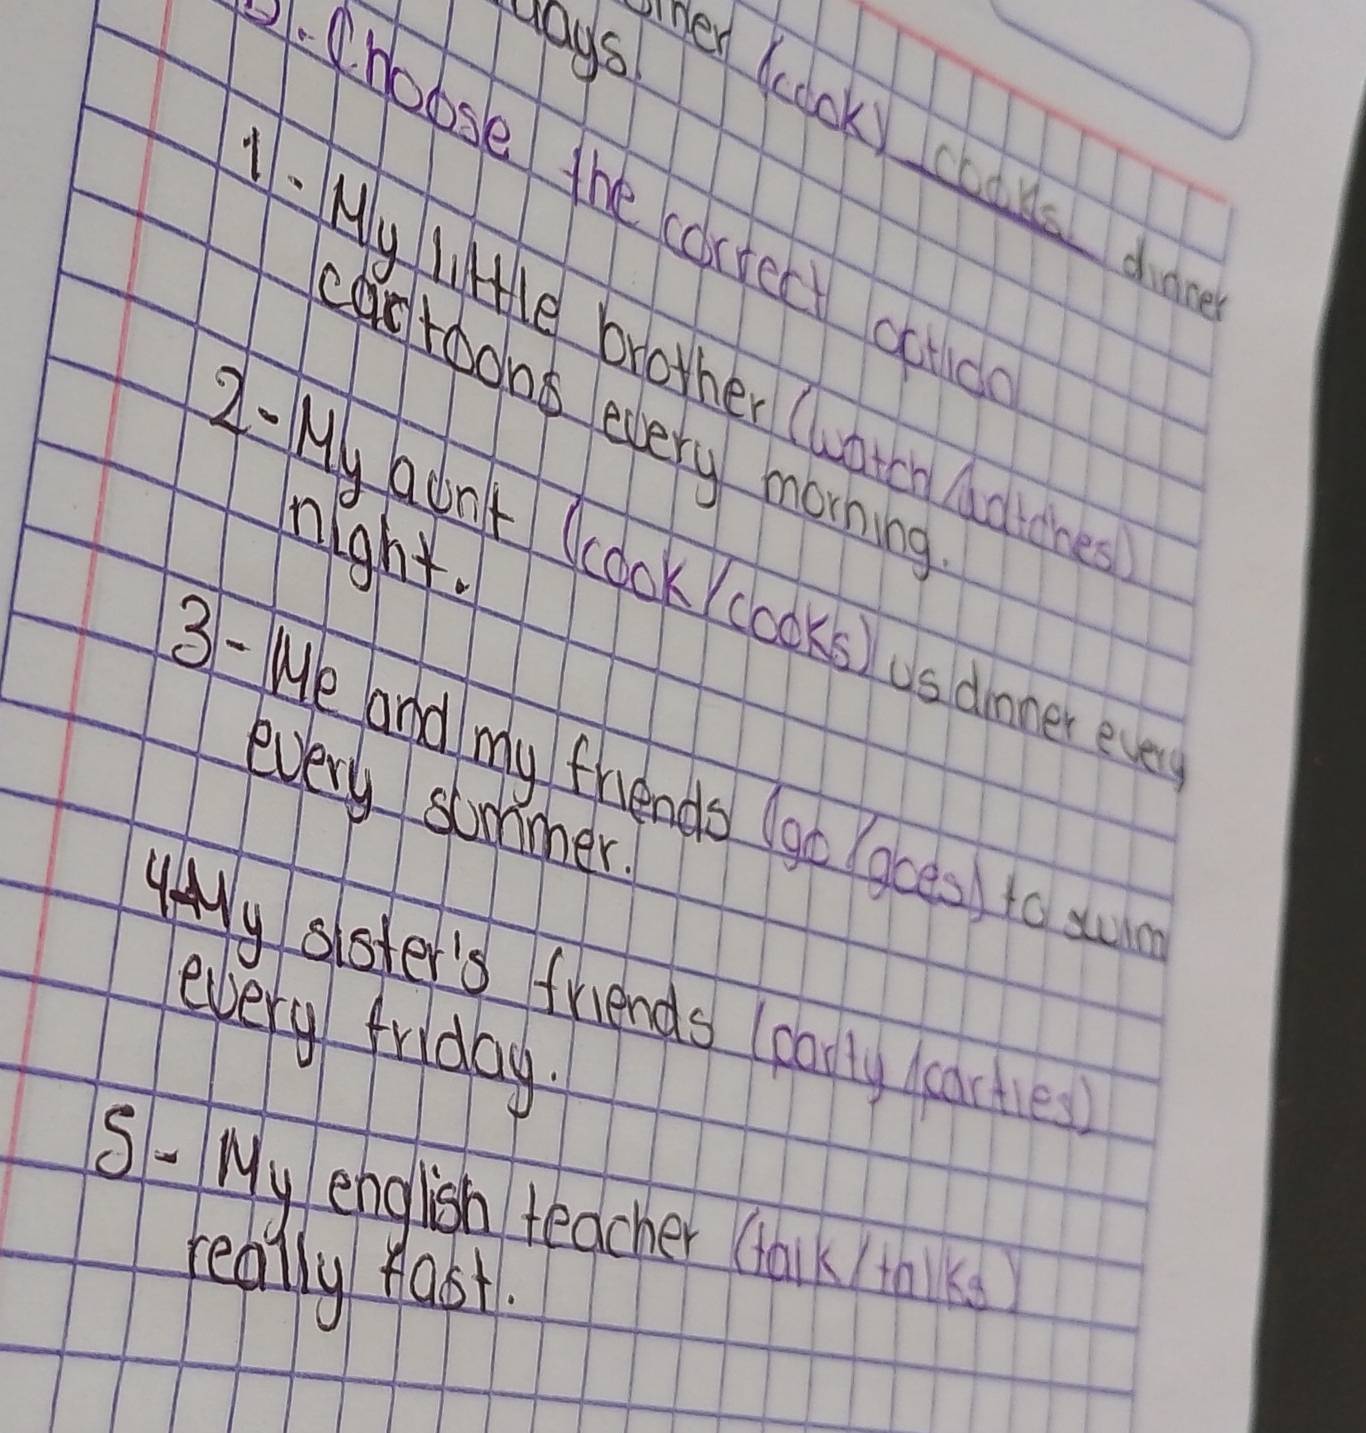 days.
(cook) cooks dinner
Choose the correct optión
1.- My little brother (watch/watches)
cartoons every morning.
2- My aunt (cook/cooks) us dinner every
night.
3- Me and my friends (go/goes) to swim
every summer.
4- My sister's friends (party/parties)
every friday.
5- My english teacher (talk/talks)
really fast.